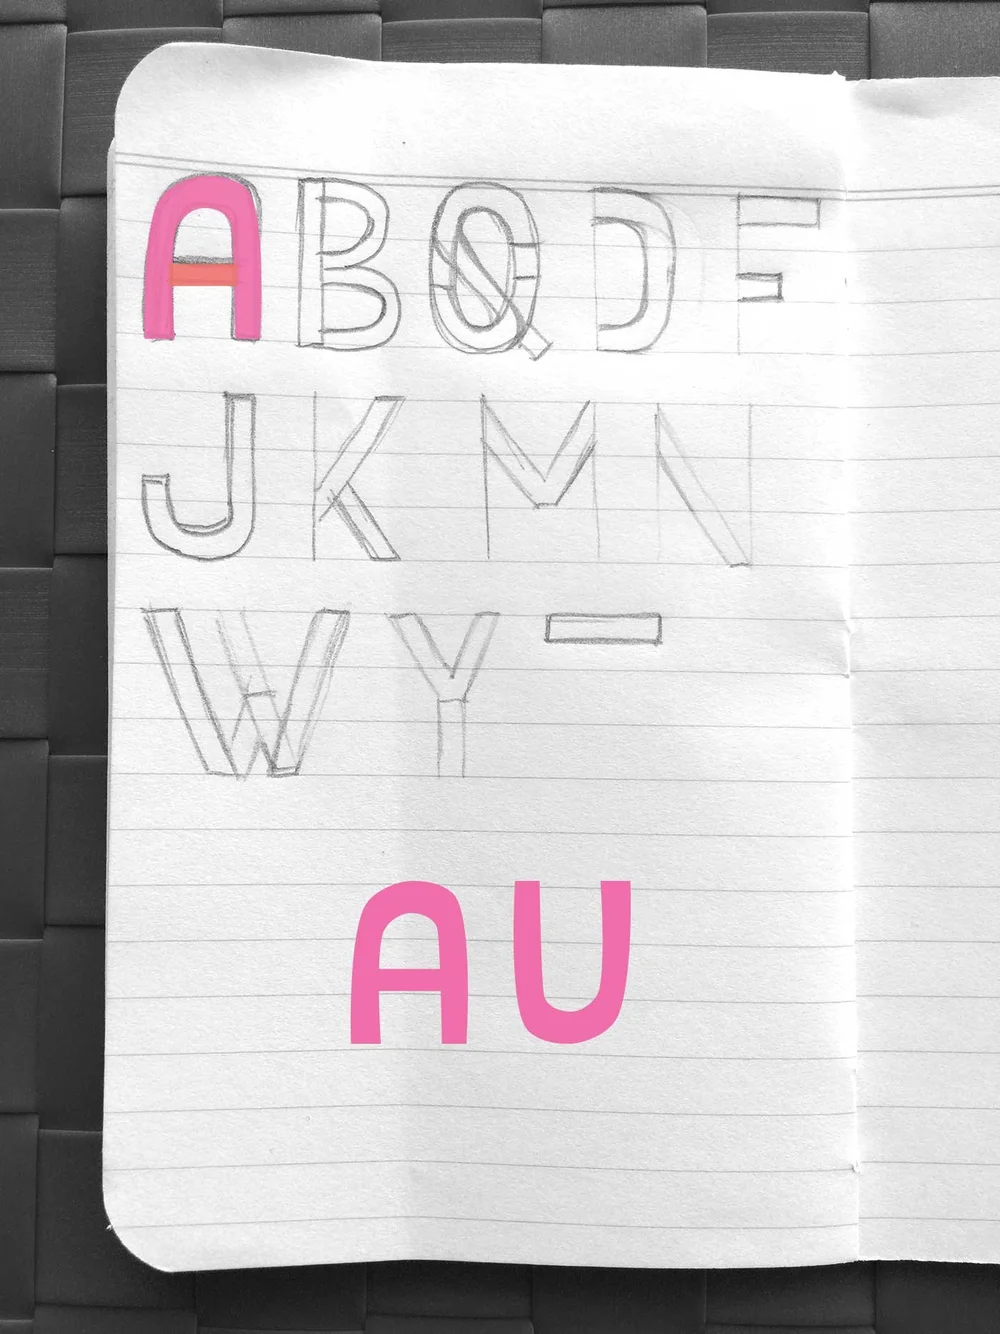 ABQDF
JKMN
WY-
AU